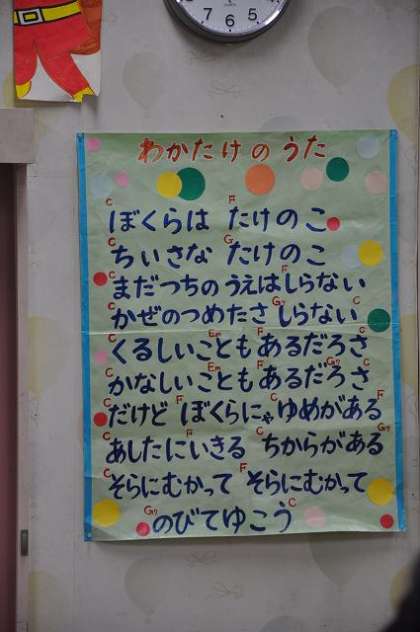 7 6 5
わかたけのうた
C F
ぼくらは たけのこ
C G
ちいさな たけのこ
C F
まだつちのうえはしらない
C G7 C
かぜのつめたさ しらない
C Em F C
くるしいことも あるだろさ
C Em F G7
かなしいことも あるだろさ
C F C F
だけど ぼくらにゃ ゆめがある
C F G7
あしたにいきる ちからがある
C F
そらにむかって そらにむかって
G7 C
のびてゆこう